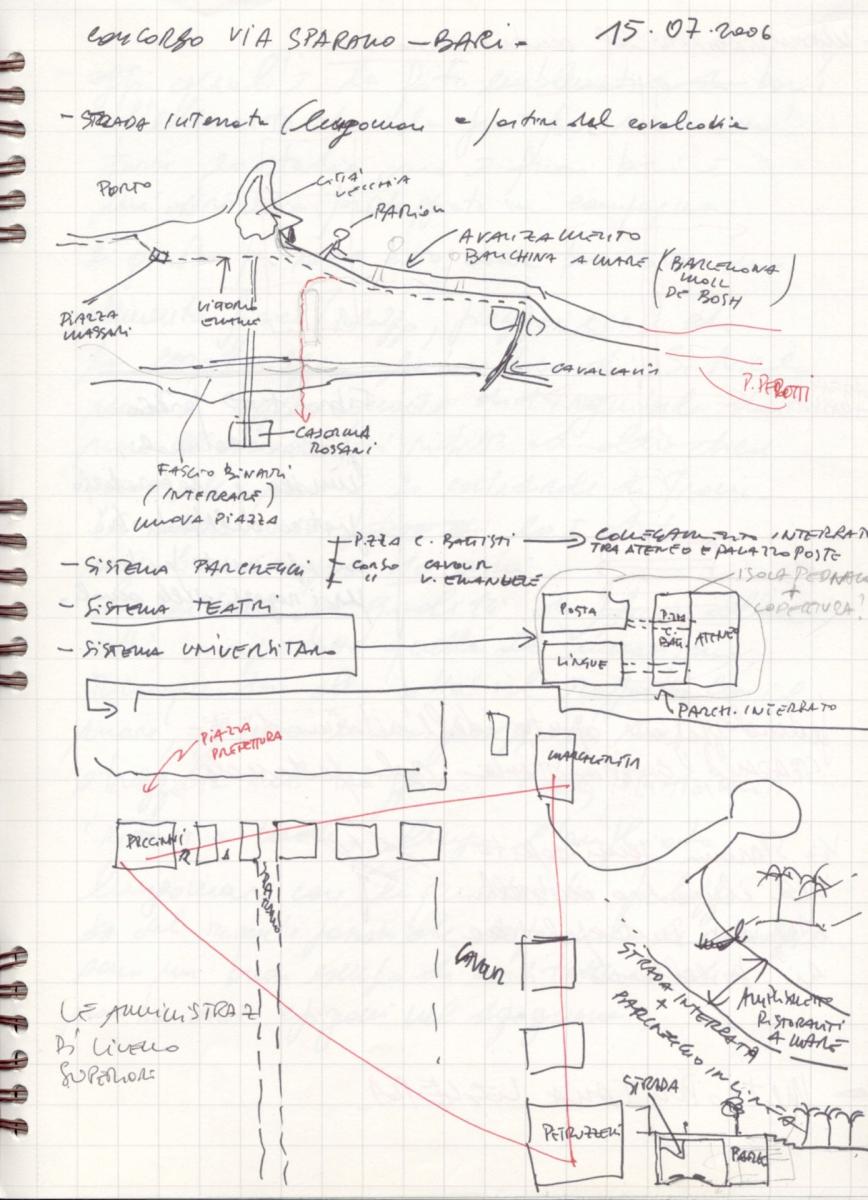 CONCORSO VIA SPARANO - BARI -
15.07.2006
- STRADA INTERRATA (lungomare a partire dal cavalcavia
PORTO
CITTÀ
VECCHIA
BARION
AVANZAMENTO
BANCHINA A MARE
(BARCELLONA
MOLL
DE BOSH)
PIAZZA
MASSARI
VITTORIO
EMANUE
CAVALCAVIA
P. PEROTTI
CASERMA
ROSSANI
FASCIO BINARI
(INTERRARE)
NUOVA PIAZZA
- SISTEMA PARCHEGGI
P.ZZA C. BATTISTI
CORSO CAVOUR
" V. EMANUELE
COLLEGAMENTO INTERRAT
TRA ATENEO E PALAZZO POSTE
ISOLA PEDONALE
+
COPERTURA?
- SISTEMA TEATRI
- SISTEMA UNIVERSITARIO
POSTA
LINGUE
P.ZZA
C.
BAT.
ATENEO
PARCH. INTERRATO
PIAZZA
PREFETTURA
MARGHERITA
PICCINNI
SPARANO
CAVOUR
STRADA INTERRATA
+
PARCHEGGIO IN LINEA
RISTORANTI
A MARE
LE AMMINISTRAZ
DI LIVELLO
SUPERIORE
STRADA
PETRUZZELLI
PARCO